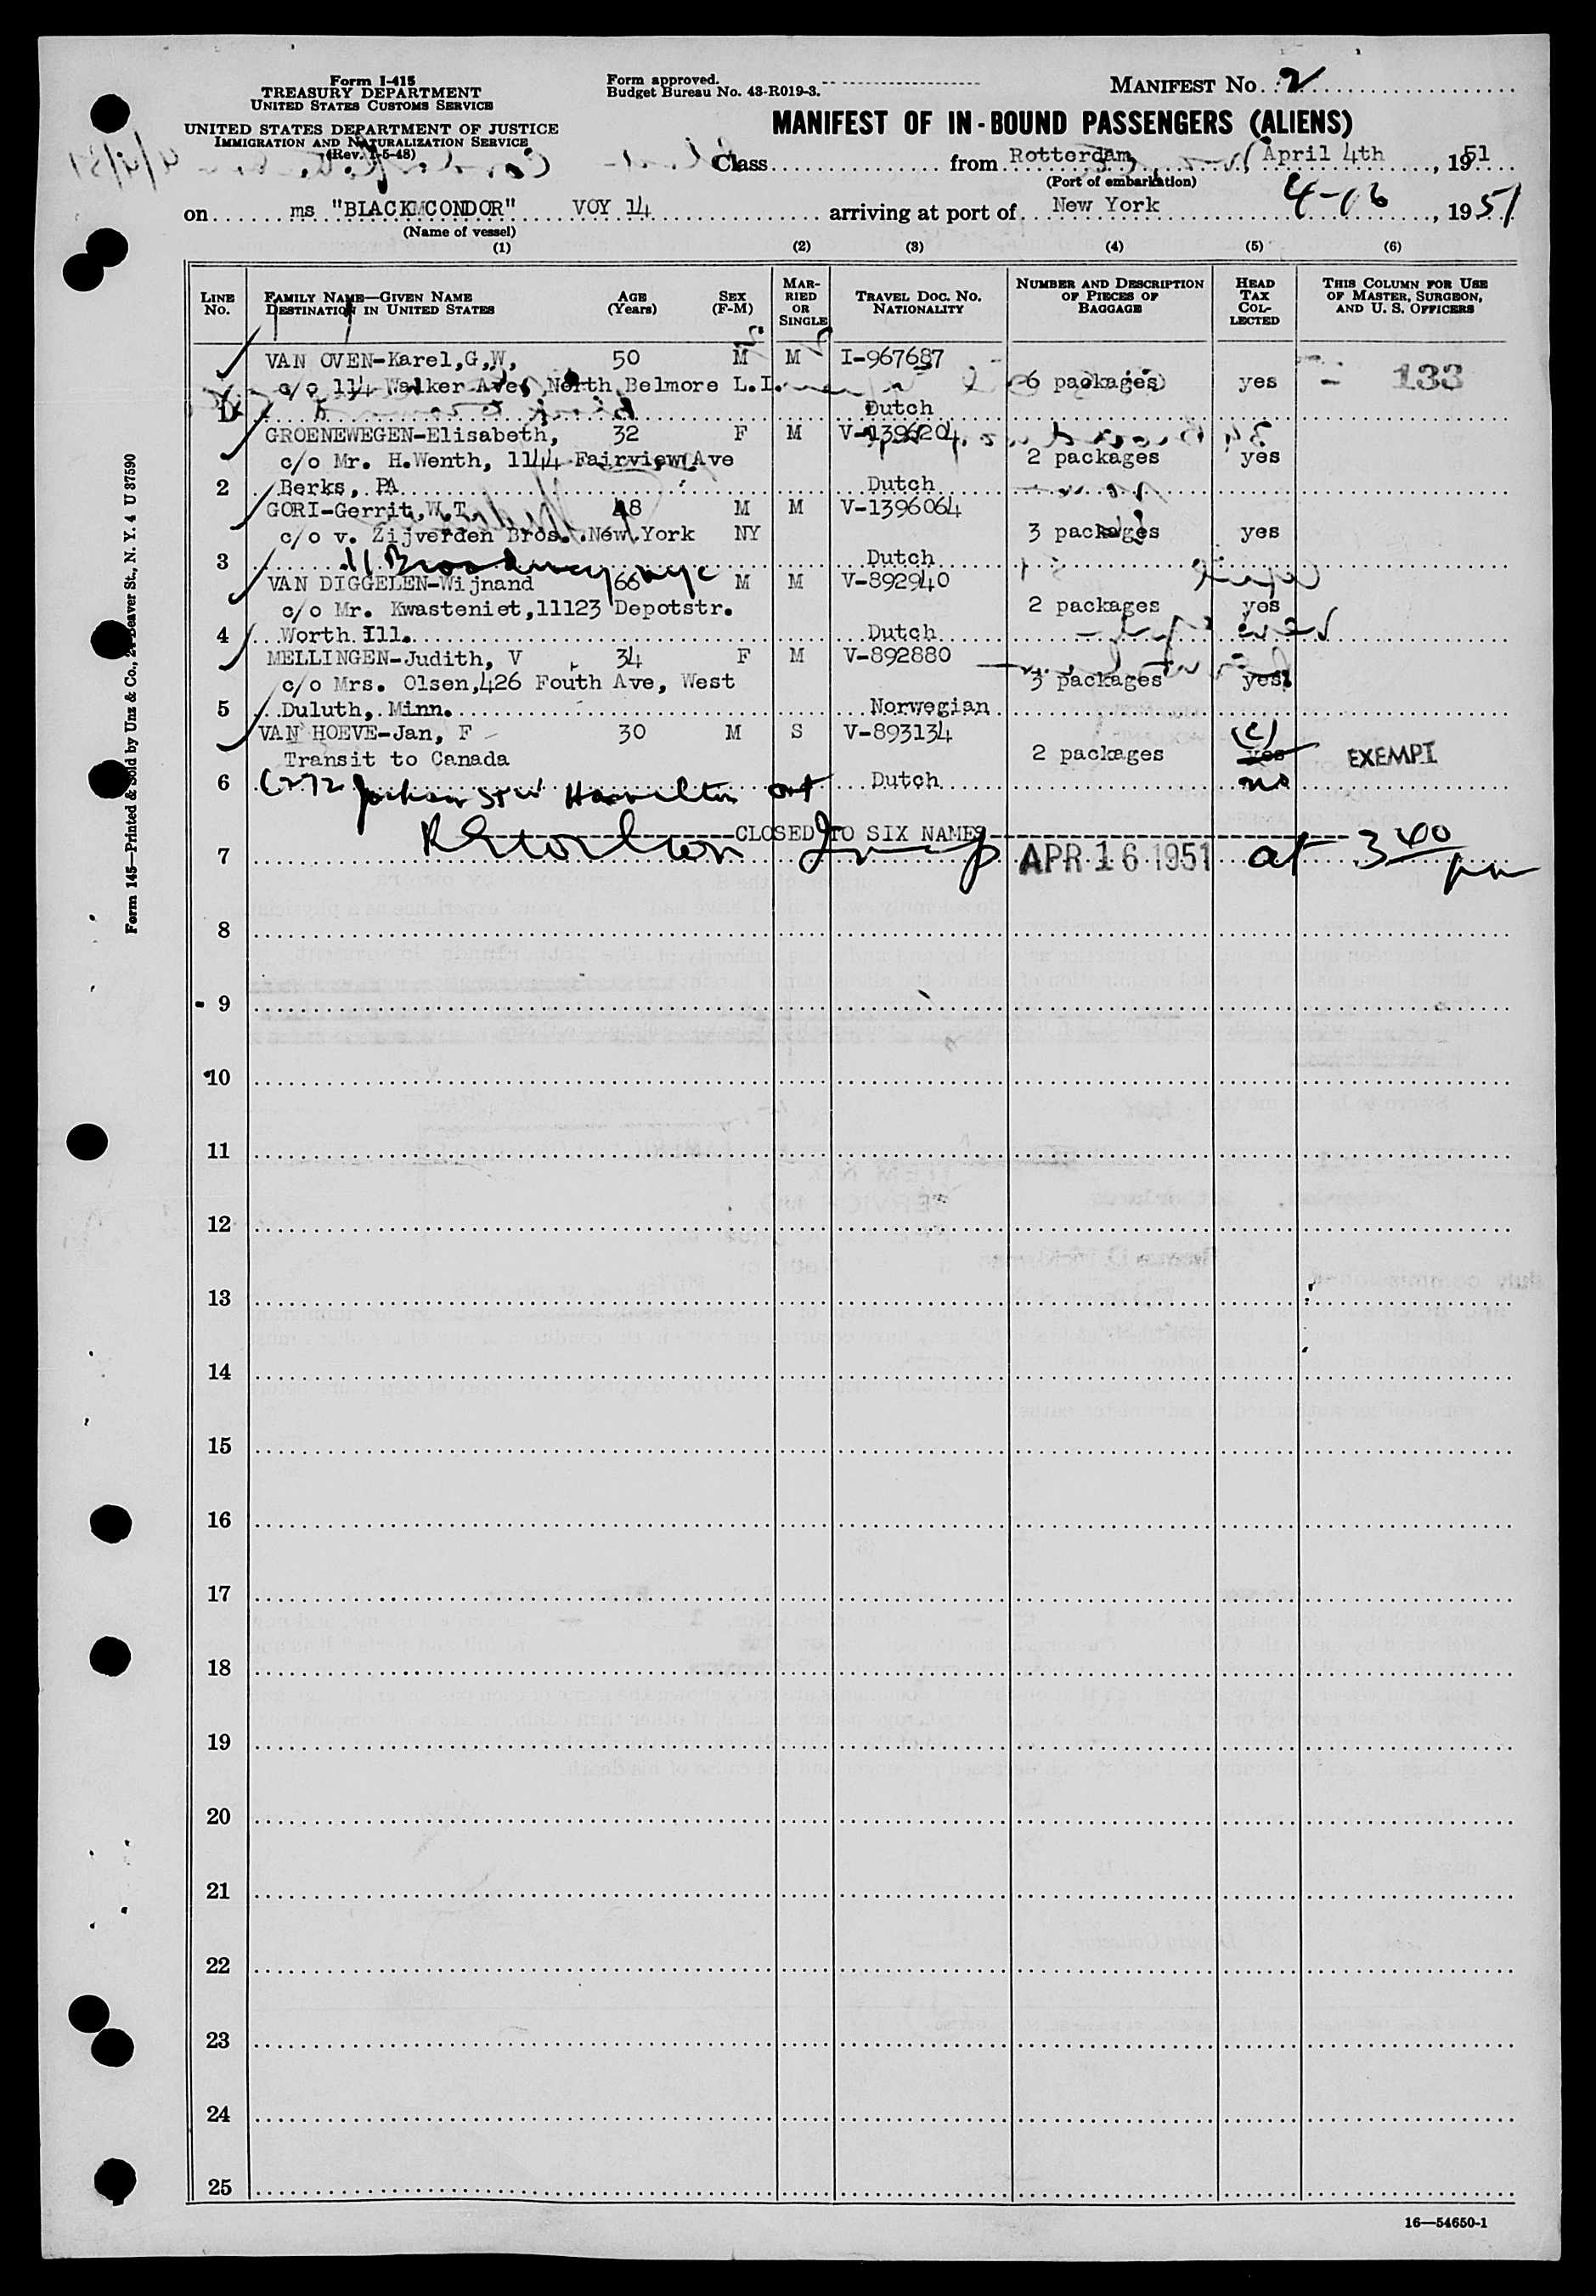 Form I-415
TREASURY DEPARTMENT
UNITED STATES CUSTOMS SERVICE
UNITED STATES DEPARTMENT OF JUSTICE
IMMIGRATION AND NATURALIZATION SERVICE
(Rev. 1-5-48)
Form approved.
Budget Bureau No. 43-R019-3.
MANIFEST No. 2
MANIFEST OF IN-BOUND PASSENGERS (ALIENS)
Class from Rotterdam, April 4th, 1951
(Port of embarkation)
on ms "BLACK CONDOR" VOY 14 arriving at port of New York 4-16, 1951
(Name of vessel)
(1) (2) (3) (4) (5) (6)
LINE No. FAMILY NAME—GIVEN NAME DESTINATION IN UNITED STATES AGE (Years) SEX (F-M) MARRIED OR SINGLE TRAVEL DOC. NO. NATIONALITY NUMBER AND DESCRIPTION OF PIECES OF BAGGAGE HEAD TAX COLLECTED THIS COLUMN FOR USE OF MASTER, SURGEON, AND U. S. OFFICERS
VAN OVEN-Karel,G,W, 50 M M I-967687
c/o 114 Walker Ave, North Belmore L.I. 6 packages yes - 133
1 Dutch
GROENEWEGEN-Elisabeth, 32 F M V-1396204
c/o Mr. H.Wenth, 1144 Fairview Ave 2 packages yes
2 Berks, PA Dutch
GORI-Gerrit,W,T, 48 M M V-1396064
c/o v. Zijverden Bros. New York NY 3 packages yes
3 11 Broadway nyc Dutch
VAN DIGGELEN-Wijnand 66 M M V-892940
c/o Mr. Kwasteniet,11123 Depotstr. 2 packages yes
4 Worth Ill. Dutch
MELLINGEN-Judith, V 34 F M V-892880
c/o Mrs. Olsen,426 Fouth Ave, West 3 packages yes
5 Duluth, Minn. Norwegian
VAN HOEVE-Jan, F 30 M S V-893134 (c)
Transit to Canada 2 packages yes EXEMPT
6 272 Jackson St W Hamilton Ont Dutch no
CLOSED TO SIX NAMES
7 APR 16 1951 at 3 40 pm
8
9
10
11
12
13
14
15
16
17
18
19
20
21
22
23
24
25
16—54650-1
Form 145—Printed & Sold by Unz & Co., 24 Beaver St., N. Y. 4 U 37590